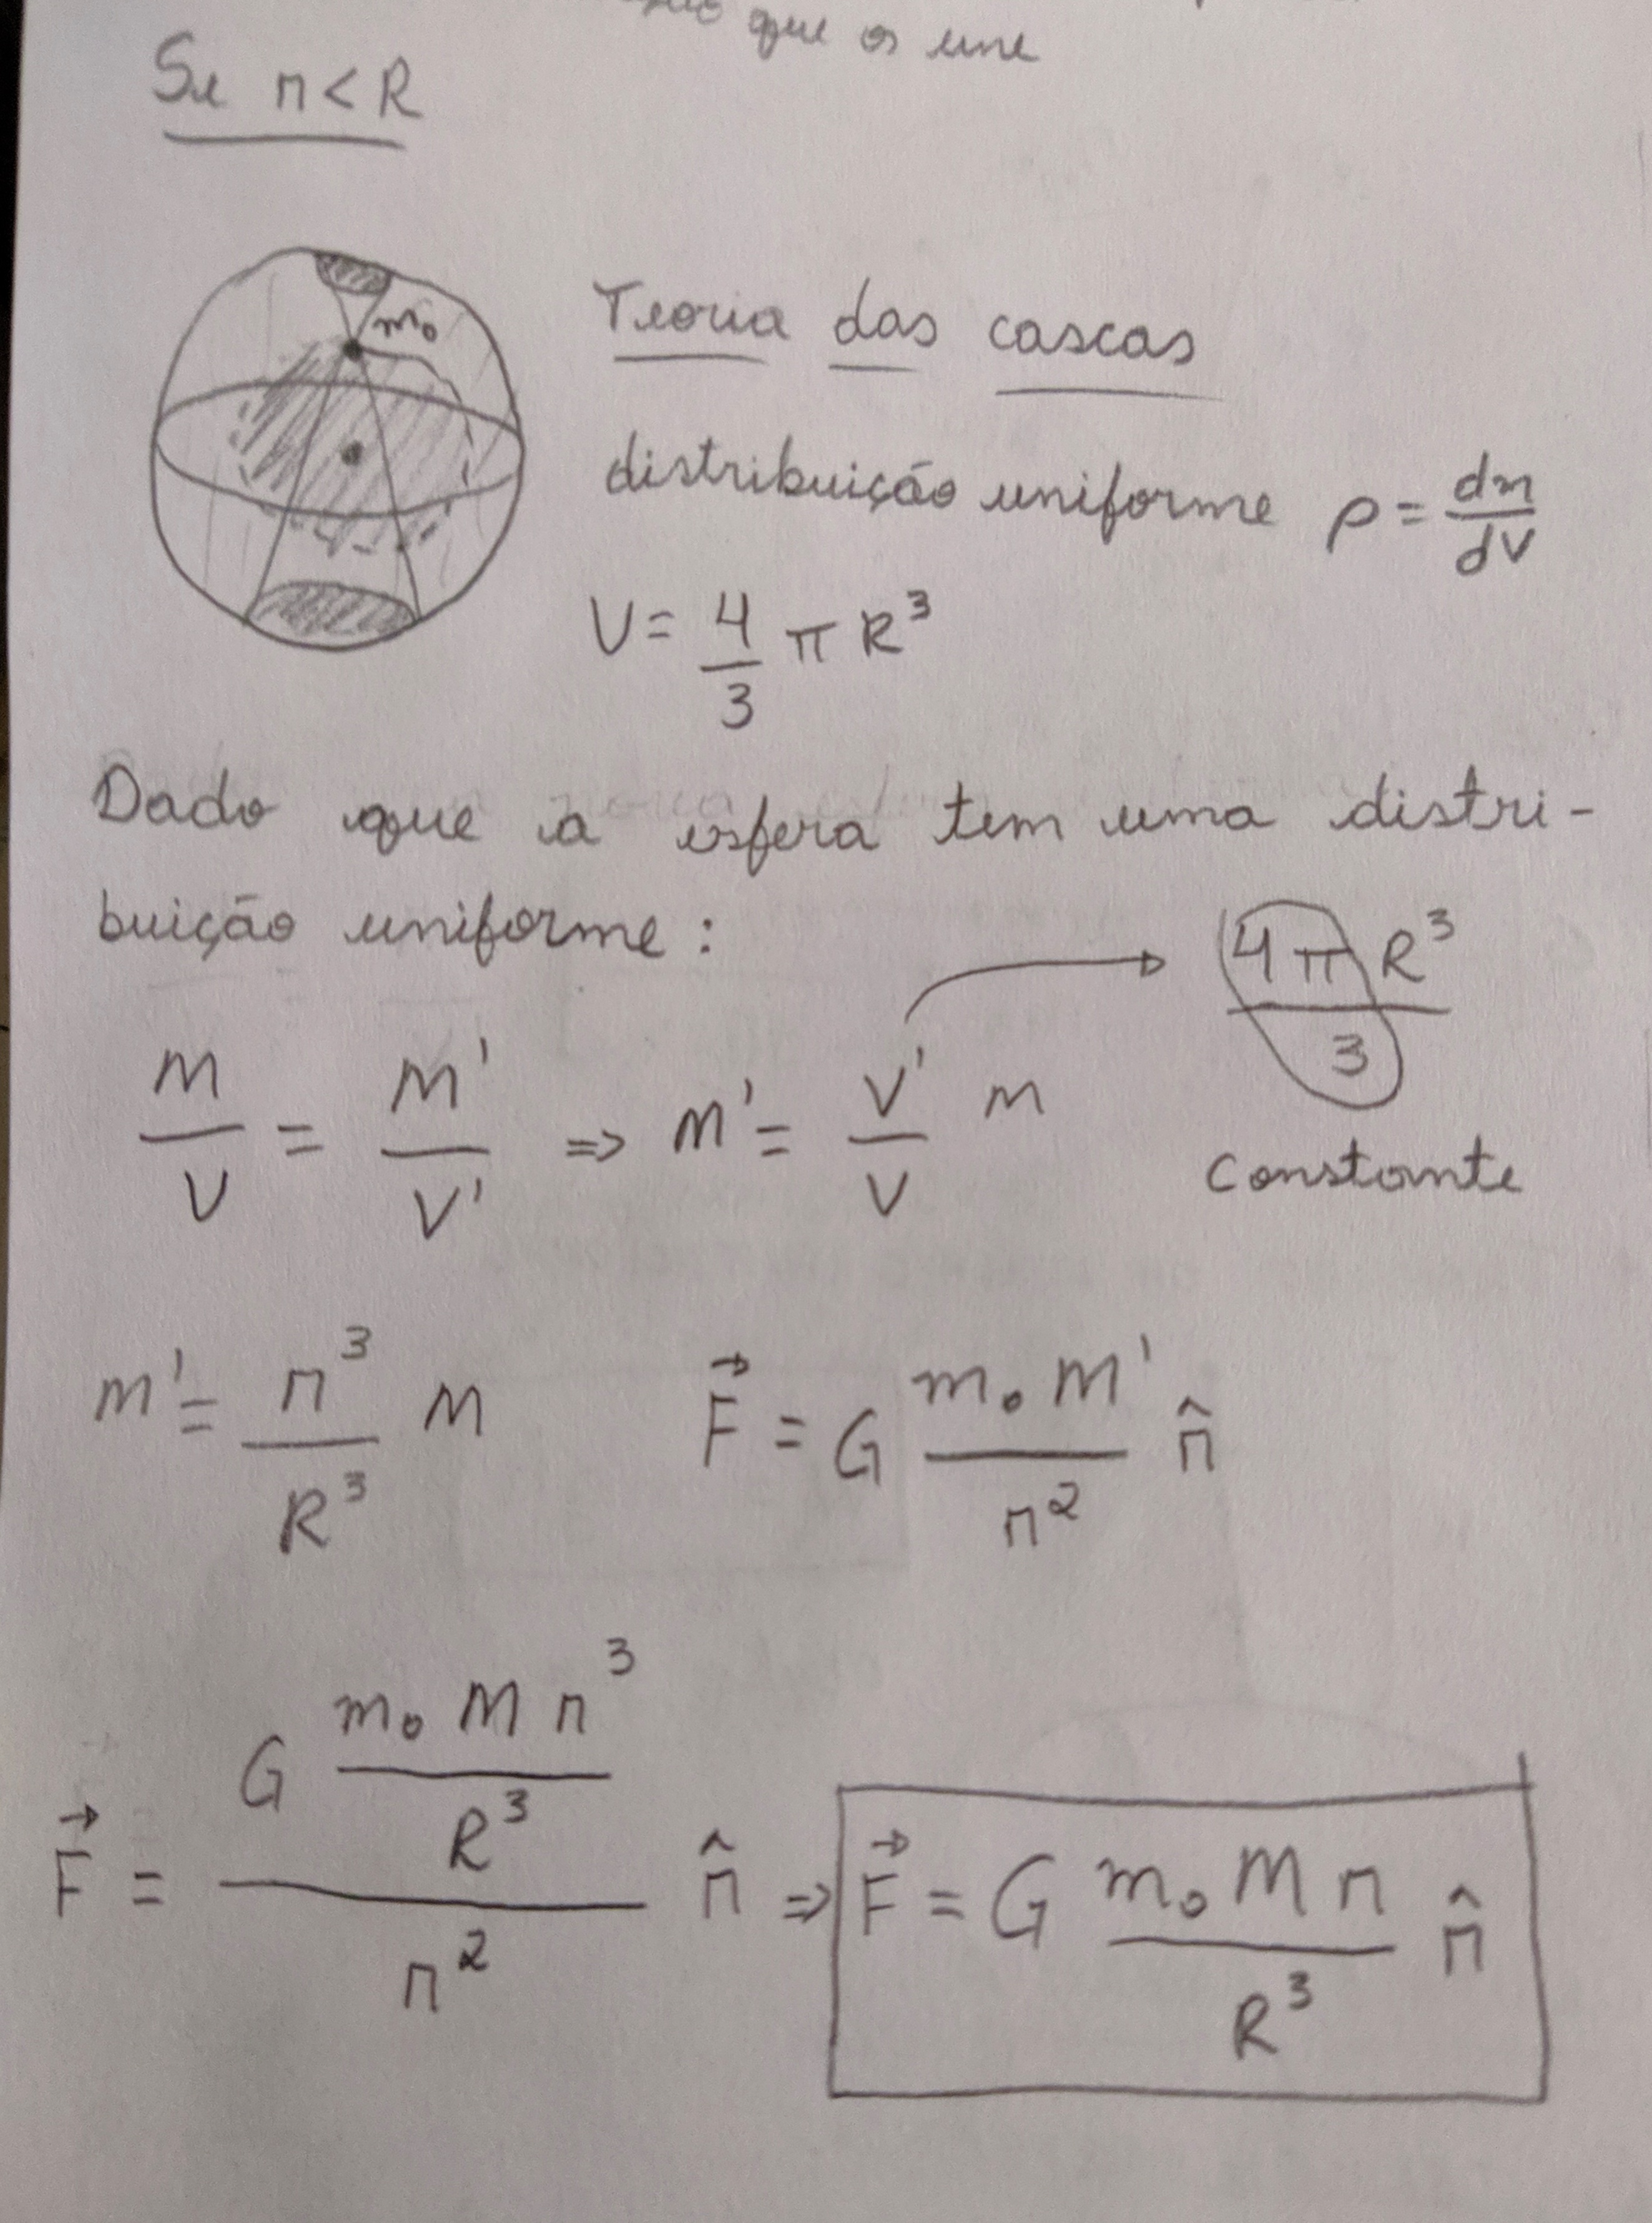 que os une
Se r < R
m₀
Teoria das cascas
distribuição uniforme ρ = dm/dV
V = 4/3 π R³
Dado que a esfera tem uma distri-
buição uniforme:
4πR³/3
M/V = M'/V' ⇒ M' = V'/V M
Constante
M' = r³/R³ M
F⃗ = G m₀ M'/r² r̂
F⃗ = (G m₀ M r³/R³)/r² r̂ ⇒ F⃗ = G m₀ M r/R³ r̂